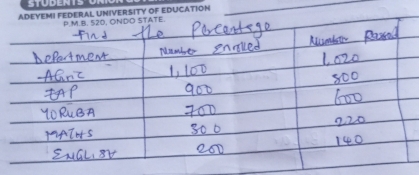 STUDENTS UNION GOVER
ADEYEMI FEDERAL UNIVERSITY OF EDUCATION
P.M.B. 520, ONDO STATE.
Find the Percentage
Department Number Passed
AGRIC 1,100 1,020
900 800
YORUBA 700 600
MATHS 300 220
ENGLISH 200 140